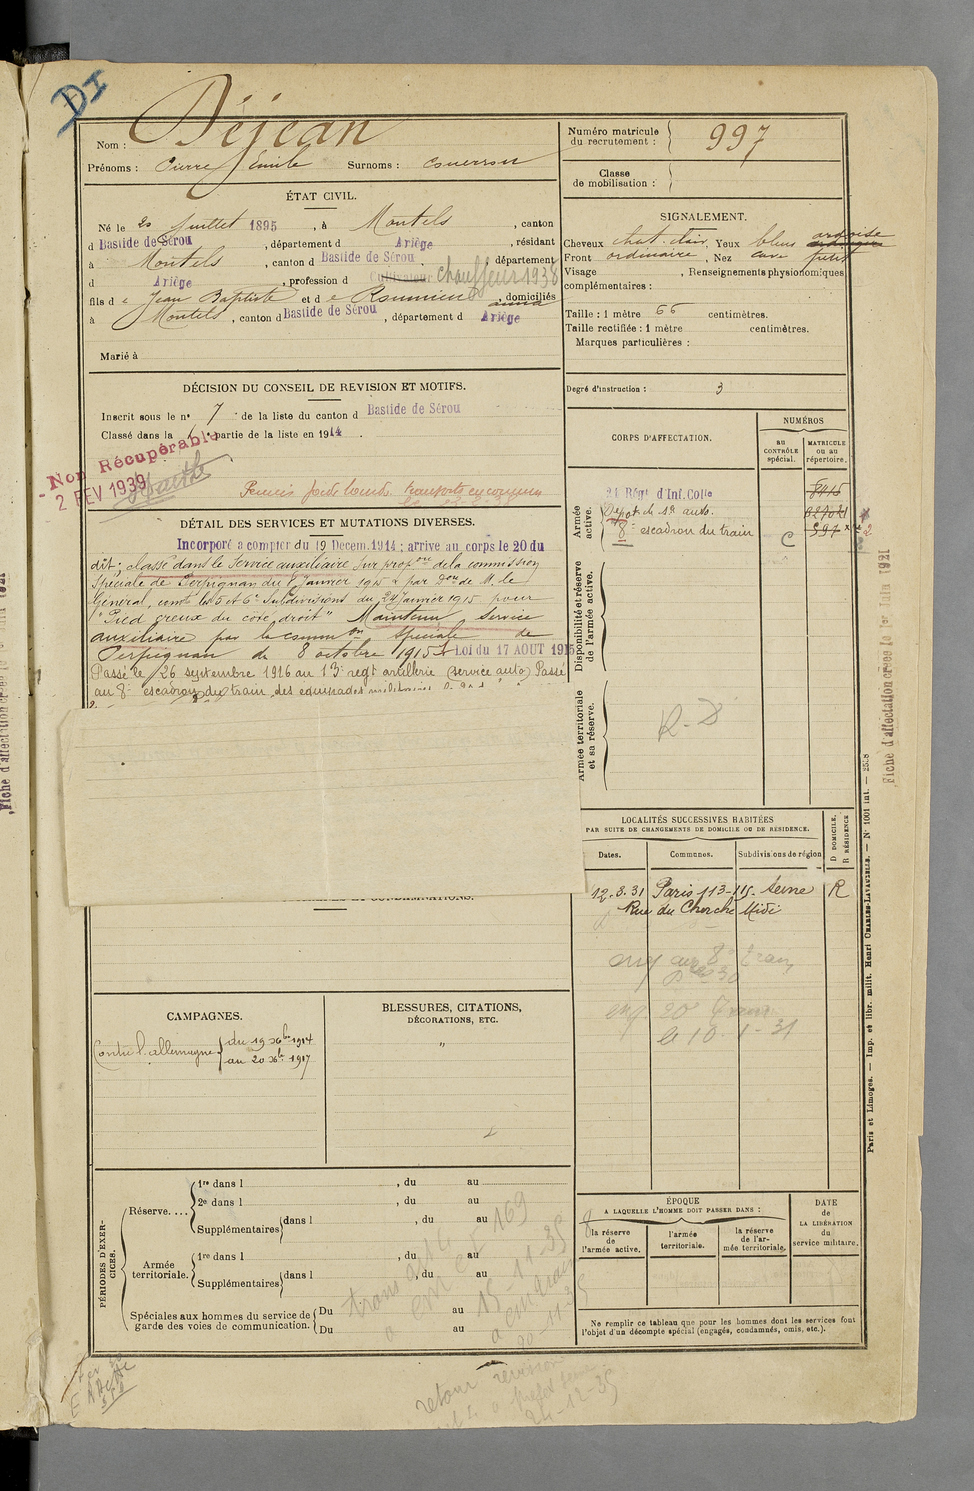 DI
Nom : Déjean
Prénoms : Pierre Emile Surnoms :
Numéro matricule du recrutement : 997
Classe de mobilisation :
ÉTAT CIVIL.
Né le 20 Juillet 1895, à Montels, canton
d Bastide de Sérou, département d Ariège, résidant
à Montels, canton d Bastide de Sérou, département
d Ariège, profession d Cultivateur chauffeur 1938
fils d e Jean Baptiste et d e Roumieu, domiciliés
à Montels, canton d Bastide de Sérou, département d Ariège
Marié à
SIGNALEMENT.
Cheveux chat. clair Yeux bleus ardoise
Front ordinaire, Nez cave petit
Visage , Renseignements physionomiques
complémentaires :
Taille : 1 mètre 66 centimètres.
Taille rectifiée : 1 mètre centimètres.
Marques particulières :
Degré d'instruction : 3
DÉCISION DU CONSEIL DE REVISION ET MOTIFS.
Inscrit sous le n° 7 de la liste du canton d Bastide de Sérou
Classé dans la 1re partie de la liste en 1914.
Non Récupérable
2 FEV 1939
DÉTAIL DES SERVICES ET MUTATIONS DIVERSES.
Incorporé à compter du 19 Decem. 1914 ; arrive au corps le 20 du
dit ; classé dans le Service auxiliaire sur prop on de la commission
Spéciale de Perpignan du 8 Janvier 1915 & par Don de M. le
Général, comt les 5 et 6e Subdivisions du 24 Janvier 1915 pour
"Pied creux du côté droit" Maintenu Service
auxiliaire par la comm on Spéciale de
Perpignan du 8 octobre 1915 Loi du 17 AOUT 1915
Passé le 26 septembre 1916 au 13e regt artillerie (service auto) Passé
au 8e escadron du train des équipages militaires
CORPS D'AFFECTATION.
NUMÉROS
au CONTRÔLE spécial.
MATRICULE ou au répertoire.
Armée active.
24 Régt d'Inf. Colle 8415
Dépôt de 1e auto.
8e escadron du train C 597
Disponibilité et réserve de l'armée active.
Armée territoriale et sa réserve.
R.D
LOCALITÉS SUCCESSIVES HABITÉES
PAR SUITE DE CHANGEMENTS DE DOMICILE OU DE RÉSIDENCE.
Dates. Communes. Subdivisions de région
D DOMICILE, R RÉSIDENCE
12.3.31 Paris 113-115 Seine R
Rue du Cherche Midi
aff au 8e train
aff. 20e Train
le 10-1-31
CAMPAGNES.
Contre l'allemagne du 19 Xbre 1914
au 20 Xbre 1917
BLESSURES, CITATIONS,
DÉCORATIONS, ETC.
"
PÉRIODES D'EXERCICES.
Réserve....
1re dans l , du au
2e dans l , du au
Supplémentaires dans l , du au
Armée territoriale.
1re dans l , du au
Supplémentaires dans l , du au
Spéciales aux hommes du service de garde des voies de communication.
Du au
Du au
15-11-35
20-11-35
retour revision
24-12-35
ÉPOQUE
A LAQUELLE L'HOMME DOIT PASSER DANS :
la réserve de l'armée active.
l'armée territoriale.
la réserve de l'armée territoriale.
DATE de LA LIBÉRATION du service militaire.
Ne remplir ce tableau que pour les hommes dont les services font
l'objet d'un décompte spécial (engagés, condamnés, omis, etc.).
Fiche d'affectation créée le 1er Juin 1921
Paris et Limoges. — Imp. et libr. milit. Henri CHARLES-LAVAUZELLE. — N° 1001 Int. — 2508